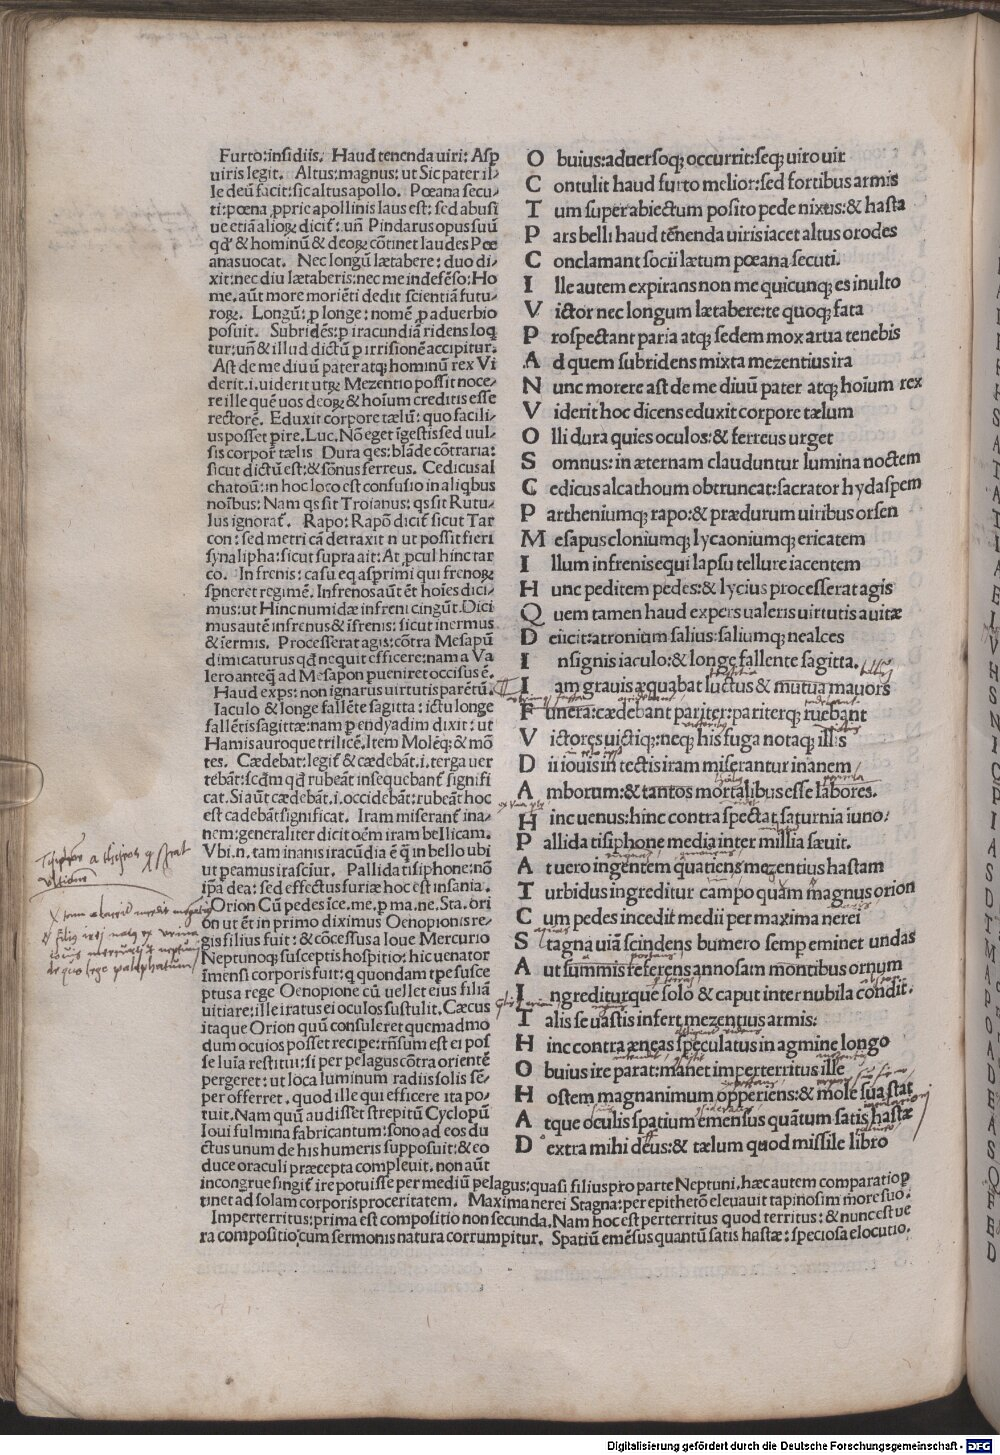 Furto:insidiis. Haud tenenda uiri: Asp
uiris legit. Altus:magnus:ut Sic pater il-
le deū facit:sic altus apollo. Pœana secu-
ti:pœna ꝓprie apollinis laus est: sed abusi
ue etiā alioꝝ dicit̃: uñ Pindarus opus suū
qd̓ & hominū & deoꝝ cōtinet laudes Pœ
anas uocat. Nec longū lætabere: duo di-
xit:nec diu lætaberis:nec me indefēso:Ho
me.aūt more moriēti dedit scientiā futu-
roꝝ. Longū:ꝓ longe: nomē ꝓ aduerbio
posuit. Subridēs:ꝓ iracundiā ridens loq̃
tur:uñ & illud dictū ꝓ irrisionē accipitur.
Ast de me diuū pater atqꝫ hominū rex Vi
derit.i.uiderit utꝝ Mezentio possit noce-
re ille quē uos deoꝝ & hoīum creditis esse
rectorē. Eduxit corpore tælū: quo facili-
us posset ꝑire.Luc.Nō eget īgestis sed uul-
sis corpor̃ tælis Dura qes:blāde cōtraria:
sicut dictū est:& sōnus ferreus. Cedicus al
chatoū:in hoc loco est confusio in aliqbus
noībus: Nam qs sit Troianus: qs sit Rutu-
lus ignorat̃. Rapo: Rapō dicit̃ sicut Tar
con: sed metri cā detraxit n ut possit fieri
synalipha:sicut supra ait: At ꝓcul hinc tar
co. In frenis: casu eq asprimi qui frenoꝝ
spneret regimē. Infrenos aūt ēt hoies dici-
mus:ut Hinc numidæ infreni cingūt.Dici
mus autē infrenus & īfrenis: sicut inermus
& īermis. Processerat agis:cōtra Mesapū
dimicaturus qd̓ nequit efficere:nam a Va
lero anteq̃ ad Mesapon pueniret occisus ē.
Haud exps: non ignarus uirtutis parētū.
Iaculo & longe fallēte sagitta: ictu longe
fallētis sagittæ:nam ꝑ endyadim dixit: ut
Hamis auroque trilicē.Item Molēqꝫ & mō
tes. Cædebat:legit̃ & cædebāt.i.terga uer
tebāt:secd̄m qd̓ ruebāt insequebant̃ signifi
cat.Si aūt cædebāt.i.occidebāt:ruebāt hoc
est cadebāt significat. Iram miserant̃ ina-
nem:generaliter dicit oēm iram bellicam.
Vbi.n.tam inanis iracūdia ē q̃ in bello ubi
ut peamus irascīur. Pallida tisiphone:nō
ipā dea: sed effectus furiæ hoc est insania.
Orion Cū pedes īce.me.p ma.ne.Sta.ori
on ut ēt in primo diximus Oenopionis re-
gis filius fuit: & cōcessus a Ioue Mercurio
Neptunoqꝫ susceptis hospitio: hic uenator
īmensi corporis fuit: q quondam tpe susce
ptus a rege Oenopione cū uellet eius filiā
uitiare:ille iratus ei oculos sustulit. Cæcus
itaque Orion quū consuleret quemadmo
dum oculos posset recipe:rñsum est ei pos
se luīa restitui: si per pelagus cōtra orientē
pergeret: ut loca luminum radiis solis sē-
per offerret. quod ille qui efficere ita po-
tuit. Nam quū audisset strepitū Cyclopū
Ioui fulmina fabricantum: sono ad eos du
ctus unum de his humeris supposuit: & eo
duce oraculi præcepta compleuit. non aūt
incongrue singit̃ ire potuisse per mediū pelagus:quasi filius pro parte Neptuni.hæc autem comparatio ꝑ
tinet ad solam corporis proceritatem. Maxima nerei Stagna:per epithetō eleuauit tapinosim more suo.
Imperterritus:prima est compositio non secunda.Nam hoc est perterritus quod territus: & nunc est ue
ra compositio cum sermonis natura corrumpitur. Spatiū emēsus quantū satis hastæ: speciosa elocutio.
O buius:aduersoqꝫ occurrit:seqꝫ uiro uir
C ontulit haud furto melior:sed fortibus armis
T um super abiectum posito pede nixus:& hasta
P ars belli haud tēnenda uiris iacet altus orodes
C onclamant socii lætum pœana secuti.
I lle autem expirans non me quicunqꝫ es inulto
V ictor nec longum lætabere:te quoqꝫ fata
P rospectant paria atqꝫ sedem mox arua tenebis
A d quem subridens mixta mezentius ira
N unc morere ast de me diuū pater atqꝫ hoīum rex
V iderit hoc dicens eduxit corpore tælum
O lli dura quies oculos:& ferreus urget
S omnus:in æternam clauduntur lumina noctem
C edicus alcathoum obtruncat:sacrator hydaspem
P artheniumqꝫ rapo:& prædurum uiribus orsen
M esapus cloniumqꝫ lycaoniumqꝫ ericatem
I llum infrenis equi lapsu tellure iacentem
H unc peditem pedes:& lycius processerat agis
Q uem tamen haud expers ualeris uirtutis auitæ
D eiicit:atronium salius:saliumqꝫ nealces
I nsignis iaculo:& longe fallente sagitta.
I am grauis æquabat luctus & mutua mauors
F unera:cædebant pariter:pariterqꝫ ruebant
V ictores uictiqꝫ:neqꝫ his fuga notaqꝫ illis
D ii iouis in tectis iram miserantur inanem
A mborum:& tantos mortalibus esse labores.
H inc uenus:hinc contra spectat saturnia iuno:
P allida tisiphone media inter millia sæuit.
A t uero ingentem quatiens mezentius hastam
T urbidus ingreditur campo quam magnus orion
C um pedes incedit medii per maxima nerei
S tagna uiā scindens humero supereminet undas
A ut summis referens annosam montibus ornum
I ngrediturque solo & caput inter nubila condit.
T alis se uastis infert mezentius armis:
H inc contra æneas speculatus in agmine longo
O buius ire parat:manet imperterritus ille
H ostem magnanimum opperiens:& mole sua stat
A tque oculis spatium emensus quātum satis hastæ
D extra mihi deus:& tælum quod missile libro
Digitalisierung gefördert durch die Deutsche Forschungsgemeinschaft - DFG